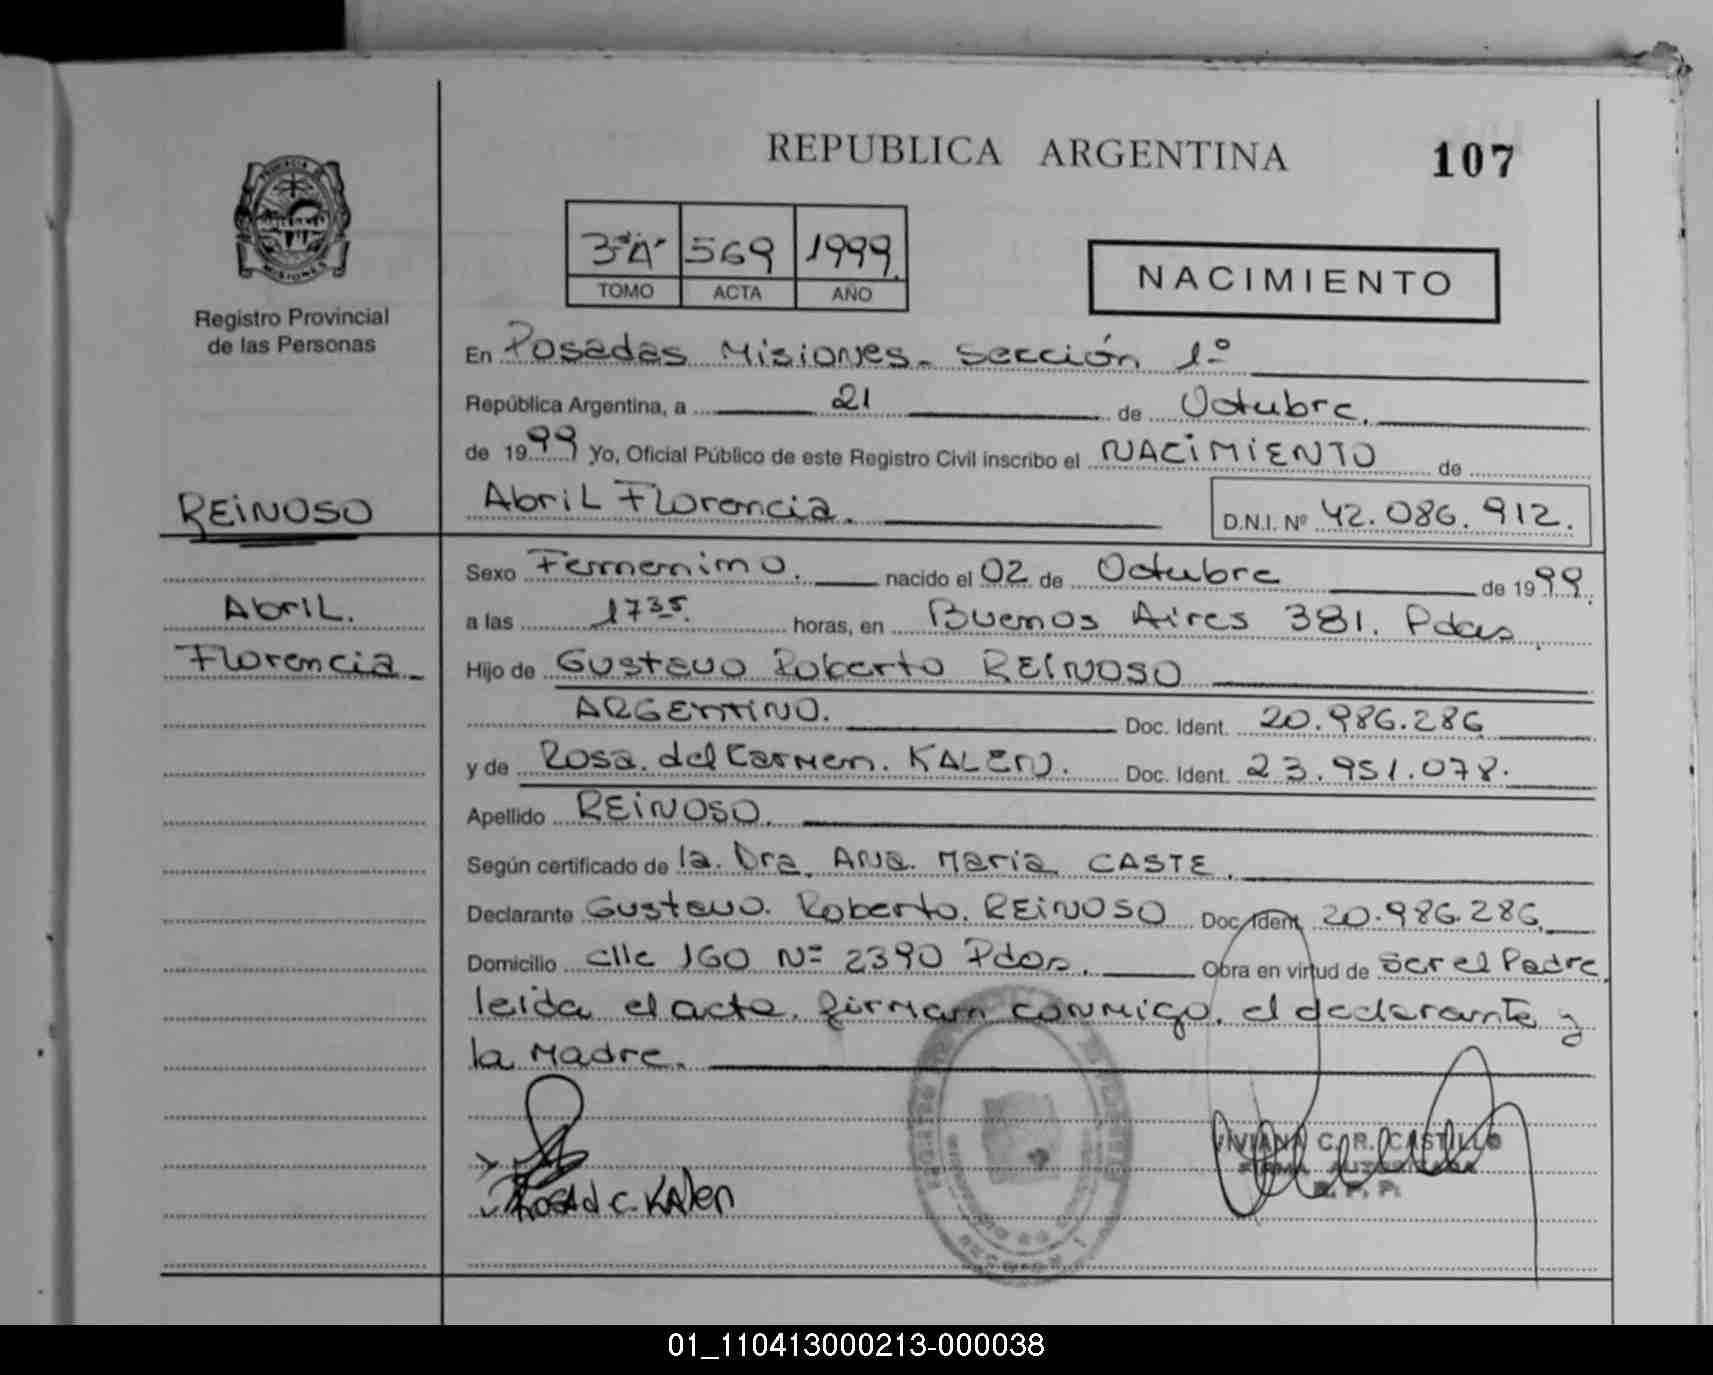 REPUBLICA ARGENTINA 107
3º"A" 569 1999.
TOMO ACTA AÑO
NACIMIENTO
PROVINCIA
MISIONES
Registro Provincial
de las Personas
En Posadas Misiones. sección 1º
República Argentina, a 21 de Octubre.
de 1999 Yo, Oficial Público de este Registro Civil inscribo el NACIMIENTO de
REINOSO Abril Florencia. D.N.I. Nº 42.086.912.
Sexo Femenino. nacido el 02 de Octubre de 1999.
Abril. a las 1735. horas, en Buenos Aires 381. Pdas
Florencia Hijo de Gustavo Roberto REINOSO
ARGENTINO. Doc. Ident. 20.986.286
y de Rosa. del Carmen. KALEN. Doc. Ident. 23.951.078.
Apellido REINOSO.
Según certificado de la. Dra. Ana. Maria CASTE.
Declarante Gustavo. Roberto. REINOSO Doc. Ident. 20.986.286.
Domicilio clle 160 Nº 2390 Pdas. Obra en virtud de ser el Padre.
leida el acta. firman conmigo. el declarante y
la Madre.
VIVIANA C. R. CASTILLO
FIRMA AUTORIZADA
R. P. P.
Rosa d c. Kalen
01_110413000213-000038